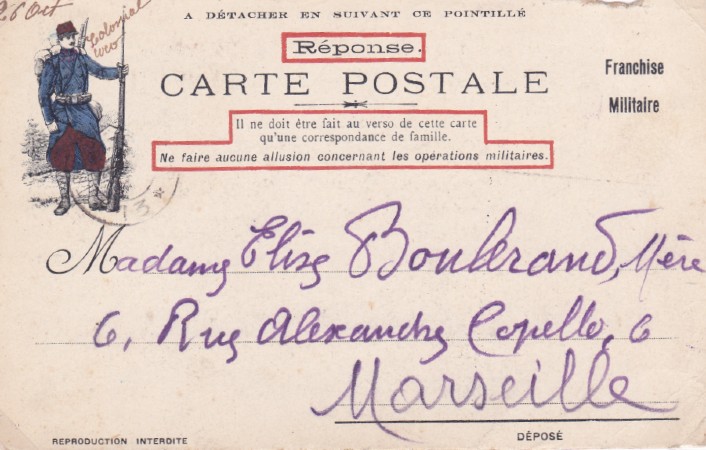 26 Oct
A DÉTACHER EN SUIVANT CE POINTILLÉ
Colonial
Réponse.
CARTE POSTALE
Franchise
Militaire
Il ne doit être fait au verso de cette carte
qu'une correspondance de famille.
Ne faire aucune allusion concernant les opérations militaires.
Madame Elise Boulerand, Mère
6, Rue Alexandre Copello, 6
Marseille
REPRODUCTION INTERDITE
DÉPOSÉ